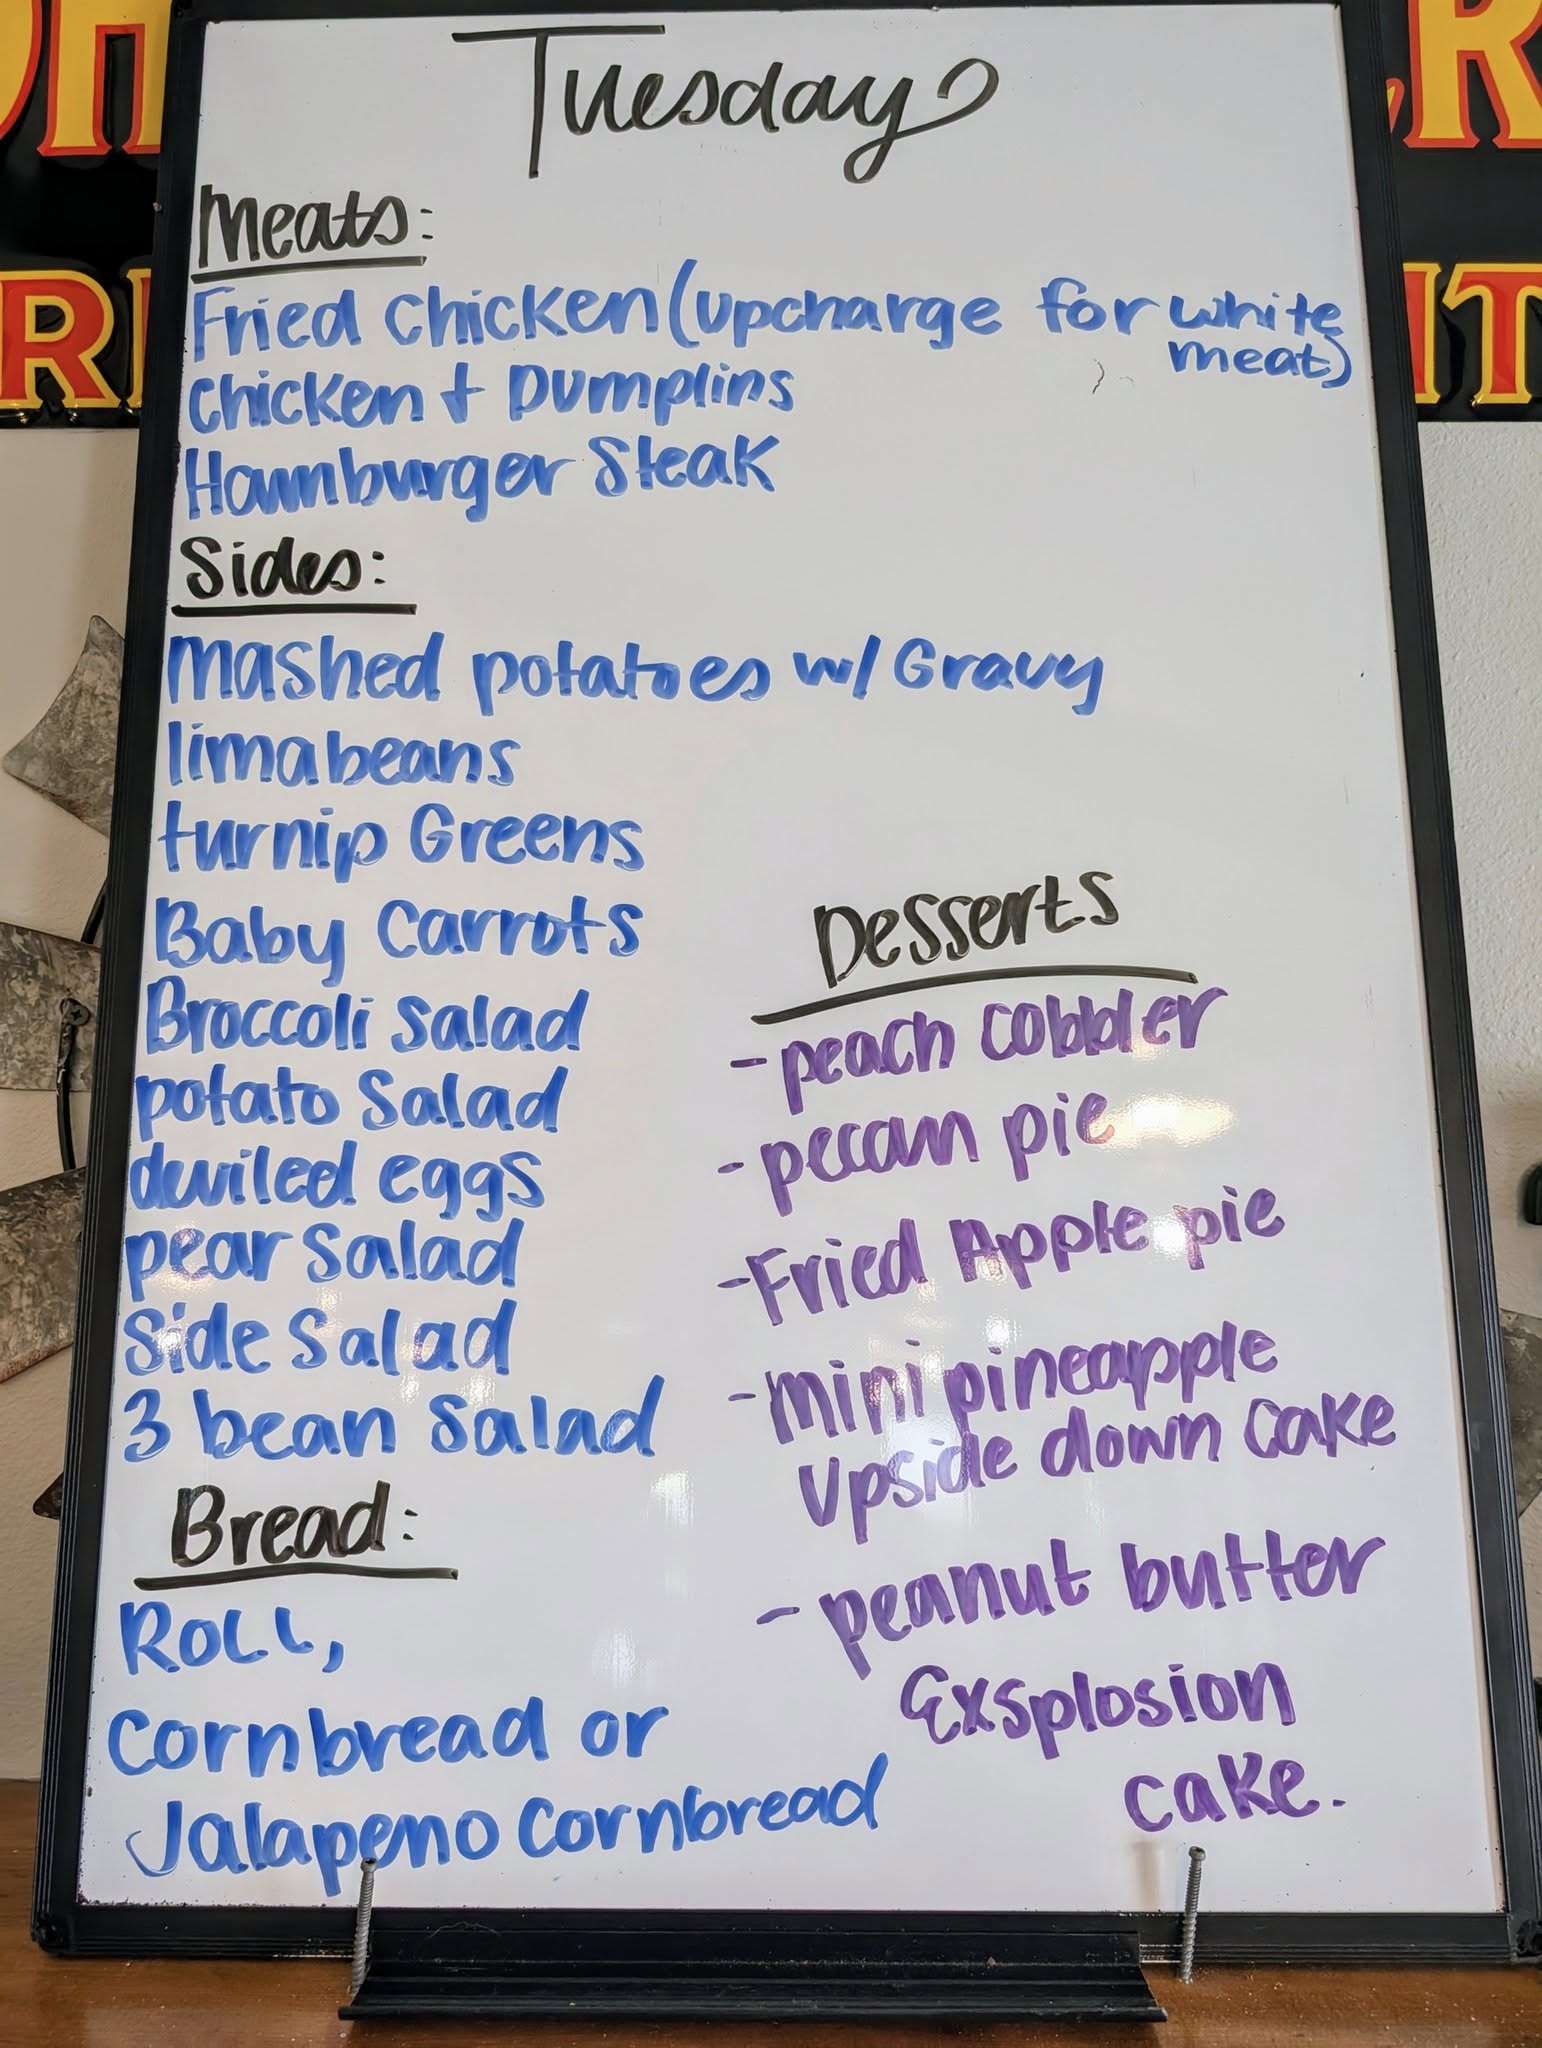 Tuesday
Meats:
Fried Chicken (upcharge for white
meat)
Chicken + Dumplins
Hamburger Steak
Sides:
Mashed potatoes w/ Gravy
limabeans
turnip Greens
Baby Carrots
Broccoli Salad
potato Salad
deviled eggs
pear Salad
Side Salad
3 bean Salad
Bread:
Roll,
Cornbread or
Jalapeno Cornbread
Desserts
- peach cobbler
- pecan pie
- Fried Apple pie
- Mini pineapple
Upside down Cake
- peanut butter
Exsplosion
Cake.